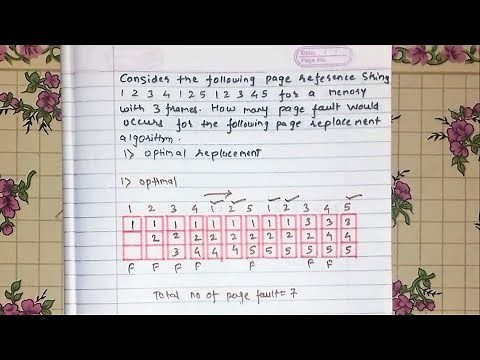 Date:
Page No.
Consider the following page reference string
1 2 3 4 1 2 5 1 2 3 4 5 for a memory
with 3 frames. How many page fault would
occurs for the following page replacement
algorithm.
1> optimal replacement
1> optimal
1 2 3 4 1 2 5 1 2 3 4 5
1 1 1 1 1 1 1 1 1 3 3 3
2 2 2 2 2 2 2 2 2 4 4
3 4 4 4 5 5 5 5 5 5
F F F F F F F
Total no of page fault = 7